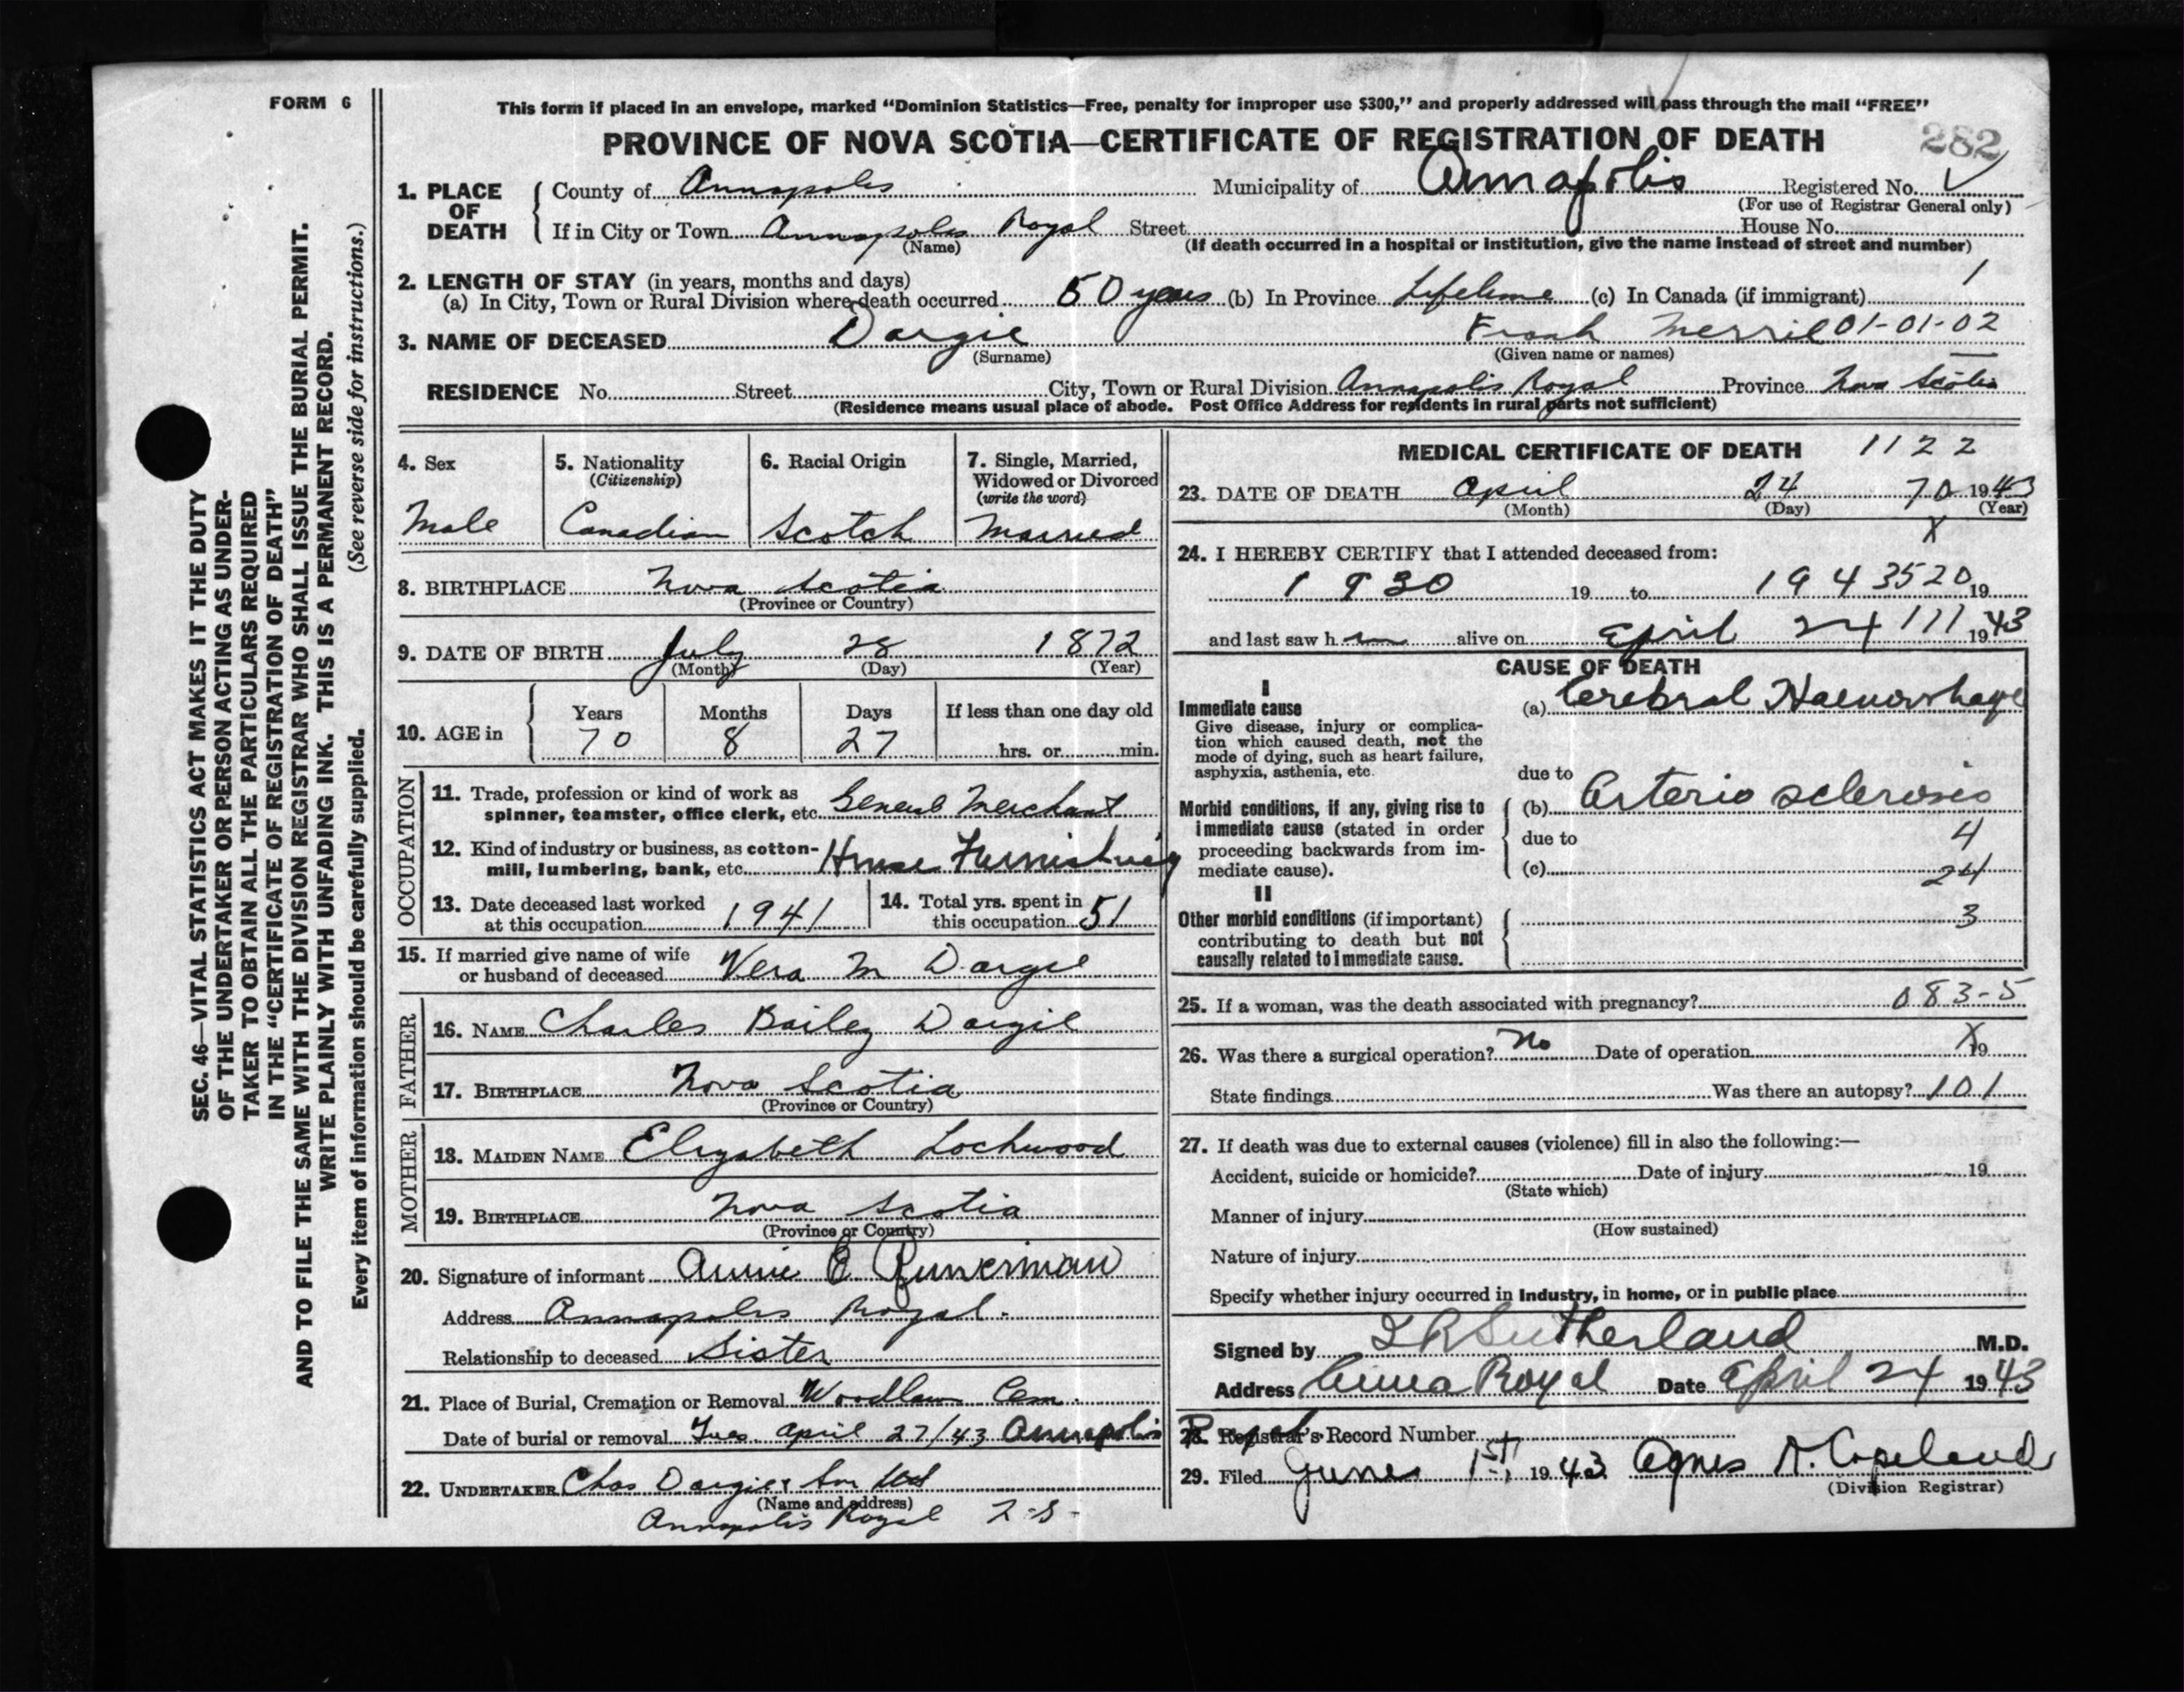 FORM 6
This form if placed in an envelope, marked “Dominion Statistics—Free, penalty for improper use $300,” and properly addressed will pass through the mail “FREE”
PROVINCE OF NOVA SCOTIA—CERTIFICATE OF REGISTRATION OF DEATH 282
1. PLACE OF DEATH { County of Annapolis Municipality of Annapolis Registered No.
(For use of Registrar General only)
If in City or Town Annapolis Royal Street House No.
(Name) (If death occurred in a hospital or institution, give the name instead of street and number)
2. LENGTH OF STAY (in years, months and days)
(a) In City, Town or Rural Division where death occurred 50 years (b) In Province Lifetime (c) In Canada (if immigrant) 1
3. NAME OF DECEASED Dargie Frank Merril 01-01-02
(Surname) (Given name or names)
RESIDENCE No. Street City, Town or Rural Division Annapolis Royal Province Nova Scotia
(Residence means usual place of abode. Post Office Address for residents in rural parts not sufficient)
4. Sex
Male
5. Nationality
(Citizenship)
Canadian
6. Racial Origin
Scotch
7. Single, Married,
Widowed or Divorced
(write the word)
Married
8. BIRTHPLACE Nova Scotia
(Province or Country)
9. DATE OF BIRTH July 28 1872
(Month) (Day) (Year)
10. AGE in Years Months Days If less than one day old
70 8 27 hrs. or min.
OCCUPATION
11. Trade, profession or kind of work as
spinner, teamster, office clerk, etc. General Merchant
12. Kind of industry or business, as cotton-
mill, lumbering, bank, etc. House Furnishing
13. Date deceased last worked
at this occupation 1941
14. Total yrs. spent in
this occupation 51
15. If married give name of wife
or husband of deceased Vera M Dargie
FATHER
16. NAME Charles Bailey Dargie
17. BIRTHPLACE Nova Scotia
(Province or Country)
MOTHER
18. MAIDEN NAME Elizabeth Lockwood
19. BIRTHPLACE Nova Scotia
(Province or Country)
20. Signature of informant Annie E
Address Annapolis Royal.
Relationship to deceased Sister
21. Place of Burial, Cremation or Removal Woodlawn Cem.
Date of burial or removal Tues April 27/43 Annapolis Royal
22. UNDERTAKER Chas Dargie & Son Ltd
(Name and address)
Annapolis Royal N-S-
MEDICAL CERTIFICATE OF DEATH 1122
23. DATE OF DEATH April 24 70 1943
(Month) (Day) (Year)
X
24. I HEREBY CERTIFY that I attended deceased from:
1930 19 to 1943 3520 19
and last saw h im alive on April 24 111 1943
CAUSE OF DEATH
I
Immediate cause (a) Cerebral Haemorrhage
Give disease, injury or complica-
tion which caused death, not the
mode of dying, such as heart failure,
asphyxia, asthenia, etc.
due to
Morbid conditions, if any, giving rise to
immediate cause (stated in order
proceeding backwards from im-
mediate cause).
(b) Arterio sclerosis
due to 4
(c) 24
II
Other morbid conditions (if important)
contributing to death but not
causally related to immediate cause.
3
25. If a woman, was the death associated with pregnancy? 083-5
26. Was there a surgical operation? No Date of operation X 19
State findings Was there an autopsy? 101
27. If death was due to external causes (violence) fill in also the following:—
Accident, suicide or homicide? Date of injury 19
(State which)
Manner of injury
(How sustained)
Nature of injury
Specify whether injury occurred in Industry, in home, or in public place
Signed by Sutherland M.D.
Address Anna Royal Date April 24 1943
28. Registrar's Record Number
29. Filed June 1st, 1943 Agnes A. Copeland
(Division Registrar)
SEC. 46—VITAL STATISTICS ACT MAKES IT THE DUTY
OF THE UNDERTAKER OR PERSON ACTING AS UNDER-
TAKER TO OBTAIN ALL THE PARTICULARS REQUIRED
IN THE “CERTIFICATE OF REGISTRATION OF DEATH”
AND TO FILE THE SAME WITH THE DIVISION REGISTRAR WHO SHALL ISSUE THE BURIAL PERMIT.
WRITE PLAINLY WITH UNFADING INK. THIS IS A PERMANENT RECORD.
Every item of information should be carefully supplied. (See reverse side for instructions.)